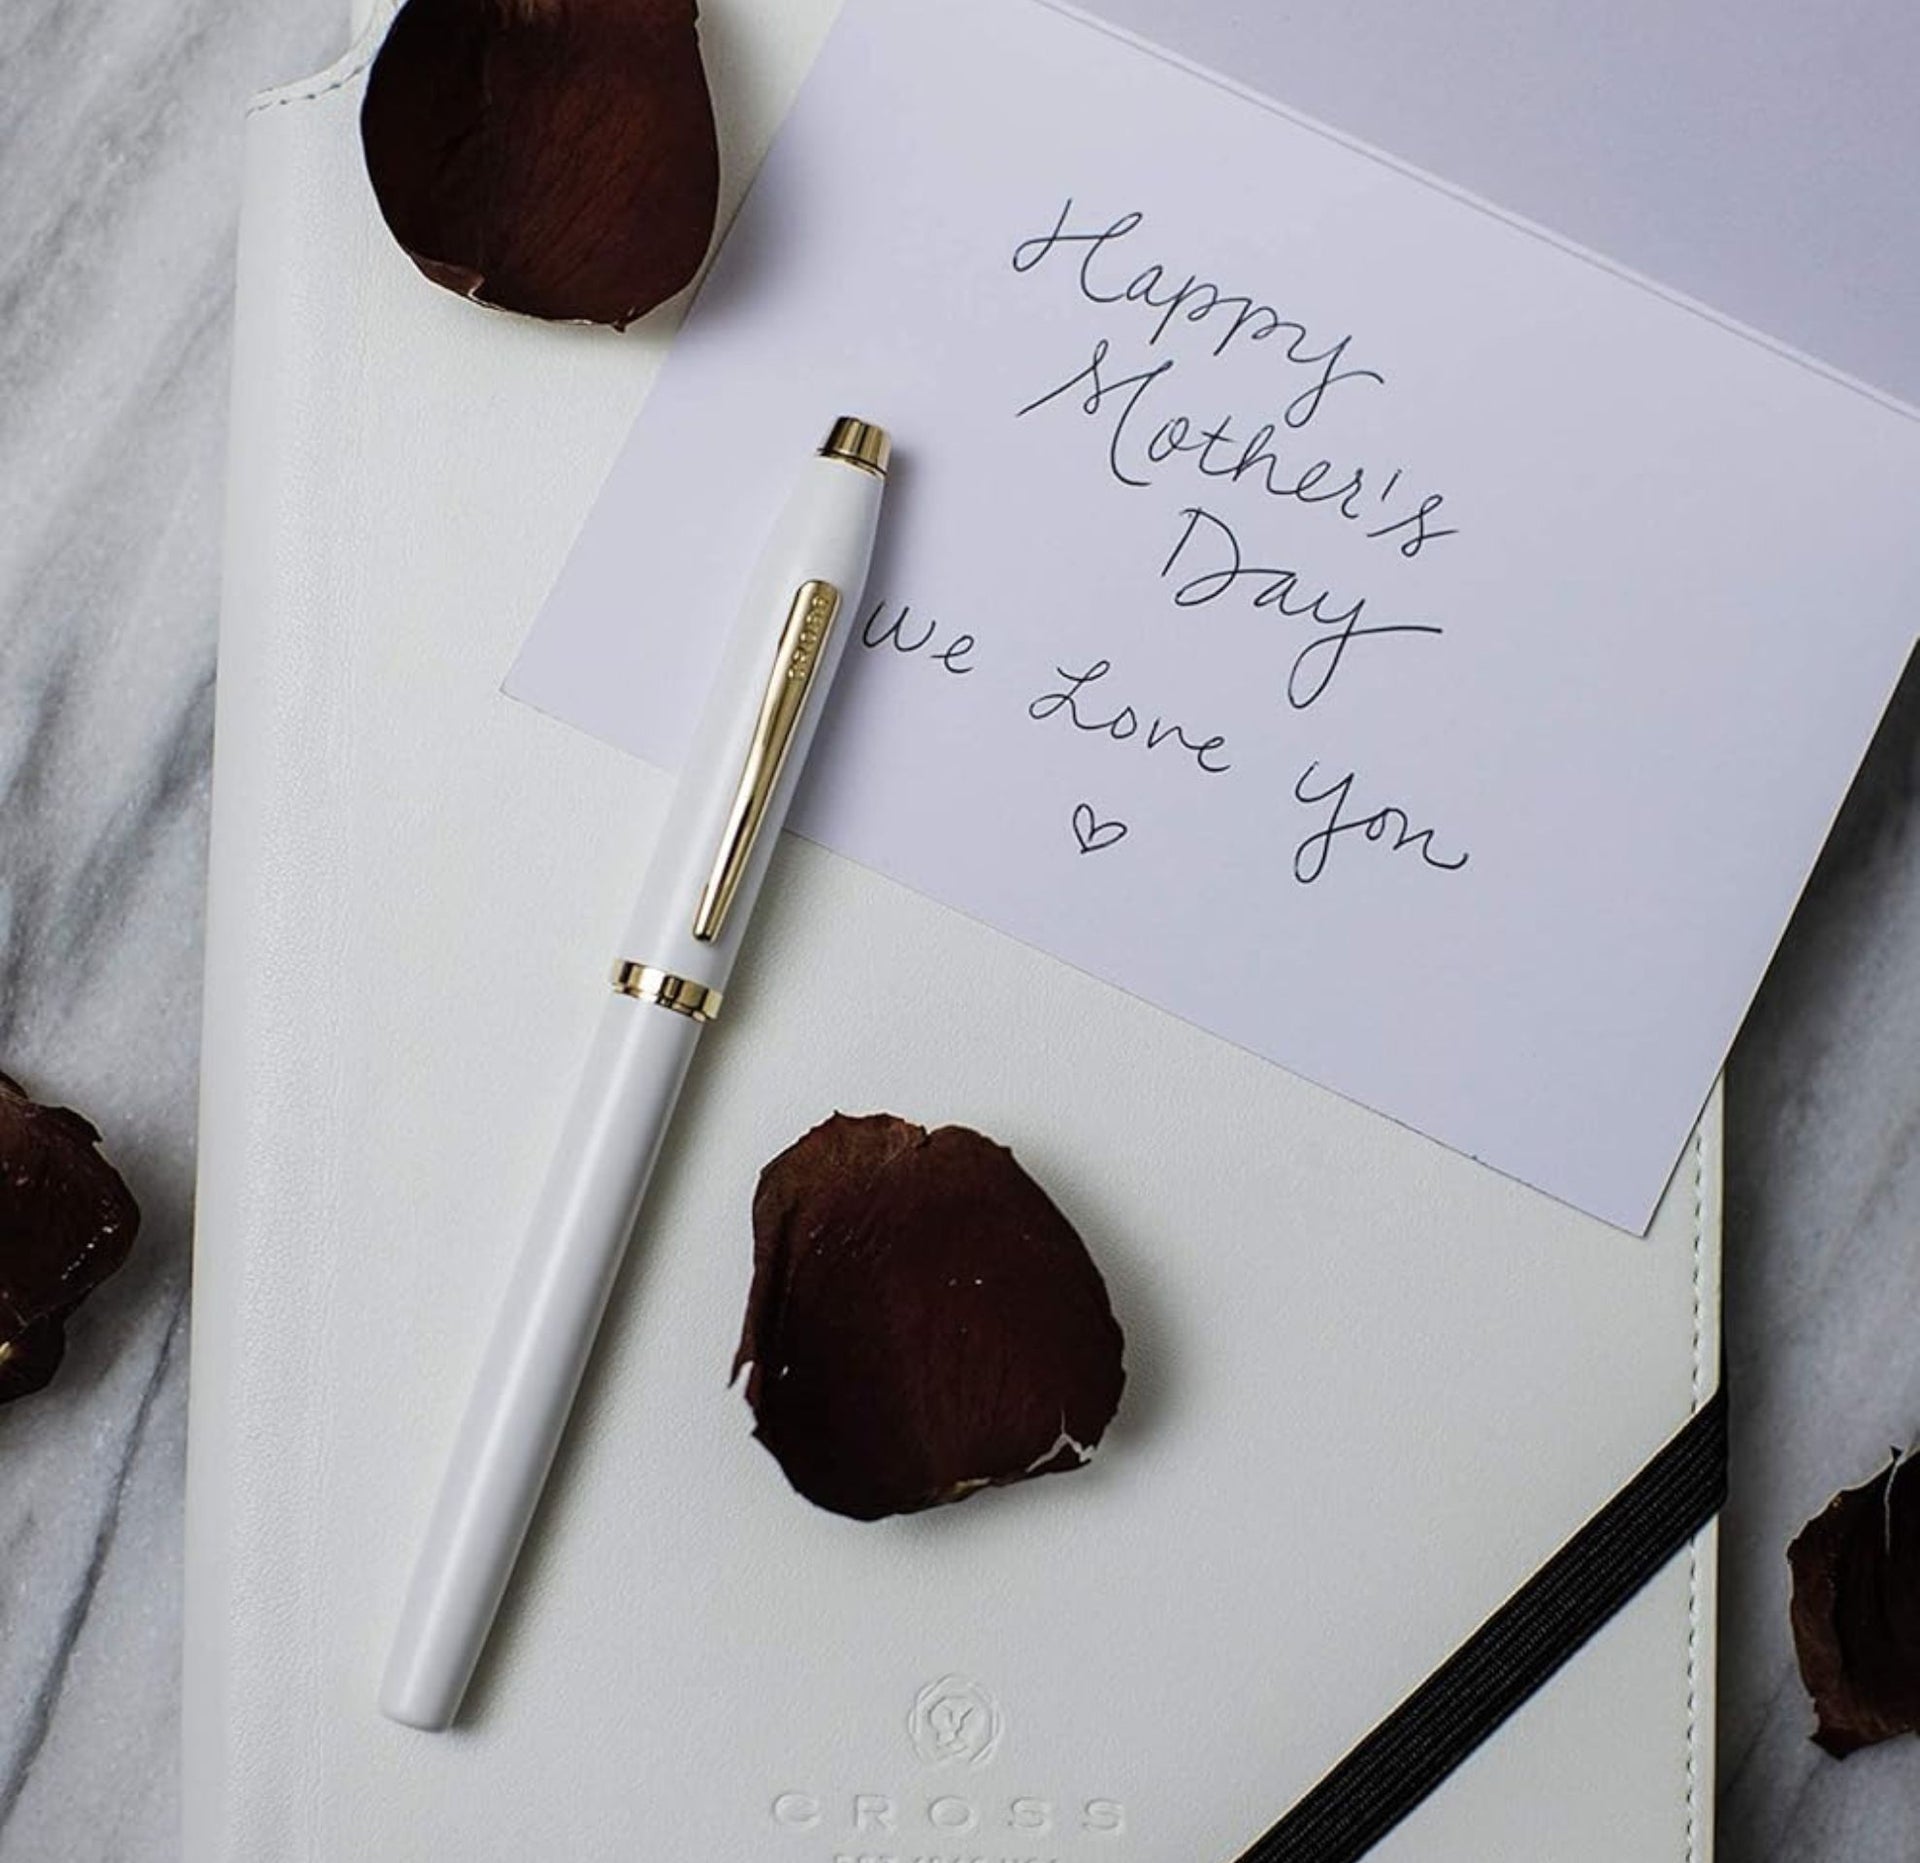 Happy
Mother's
Day
We Love You
CROSS
CROSS